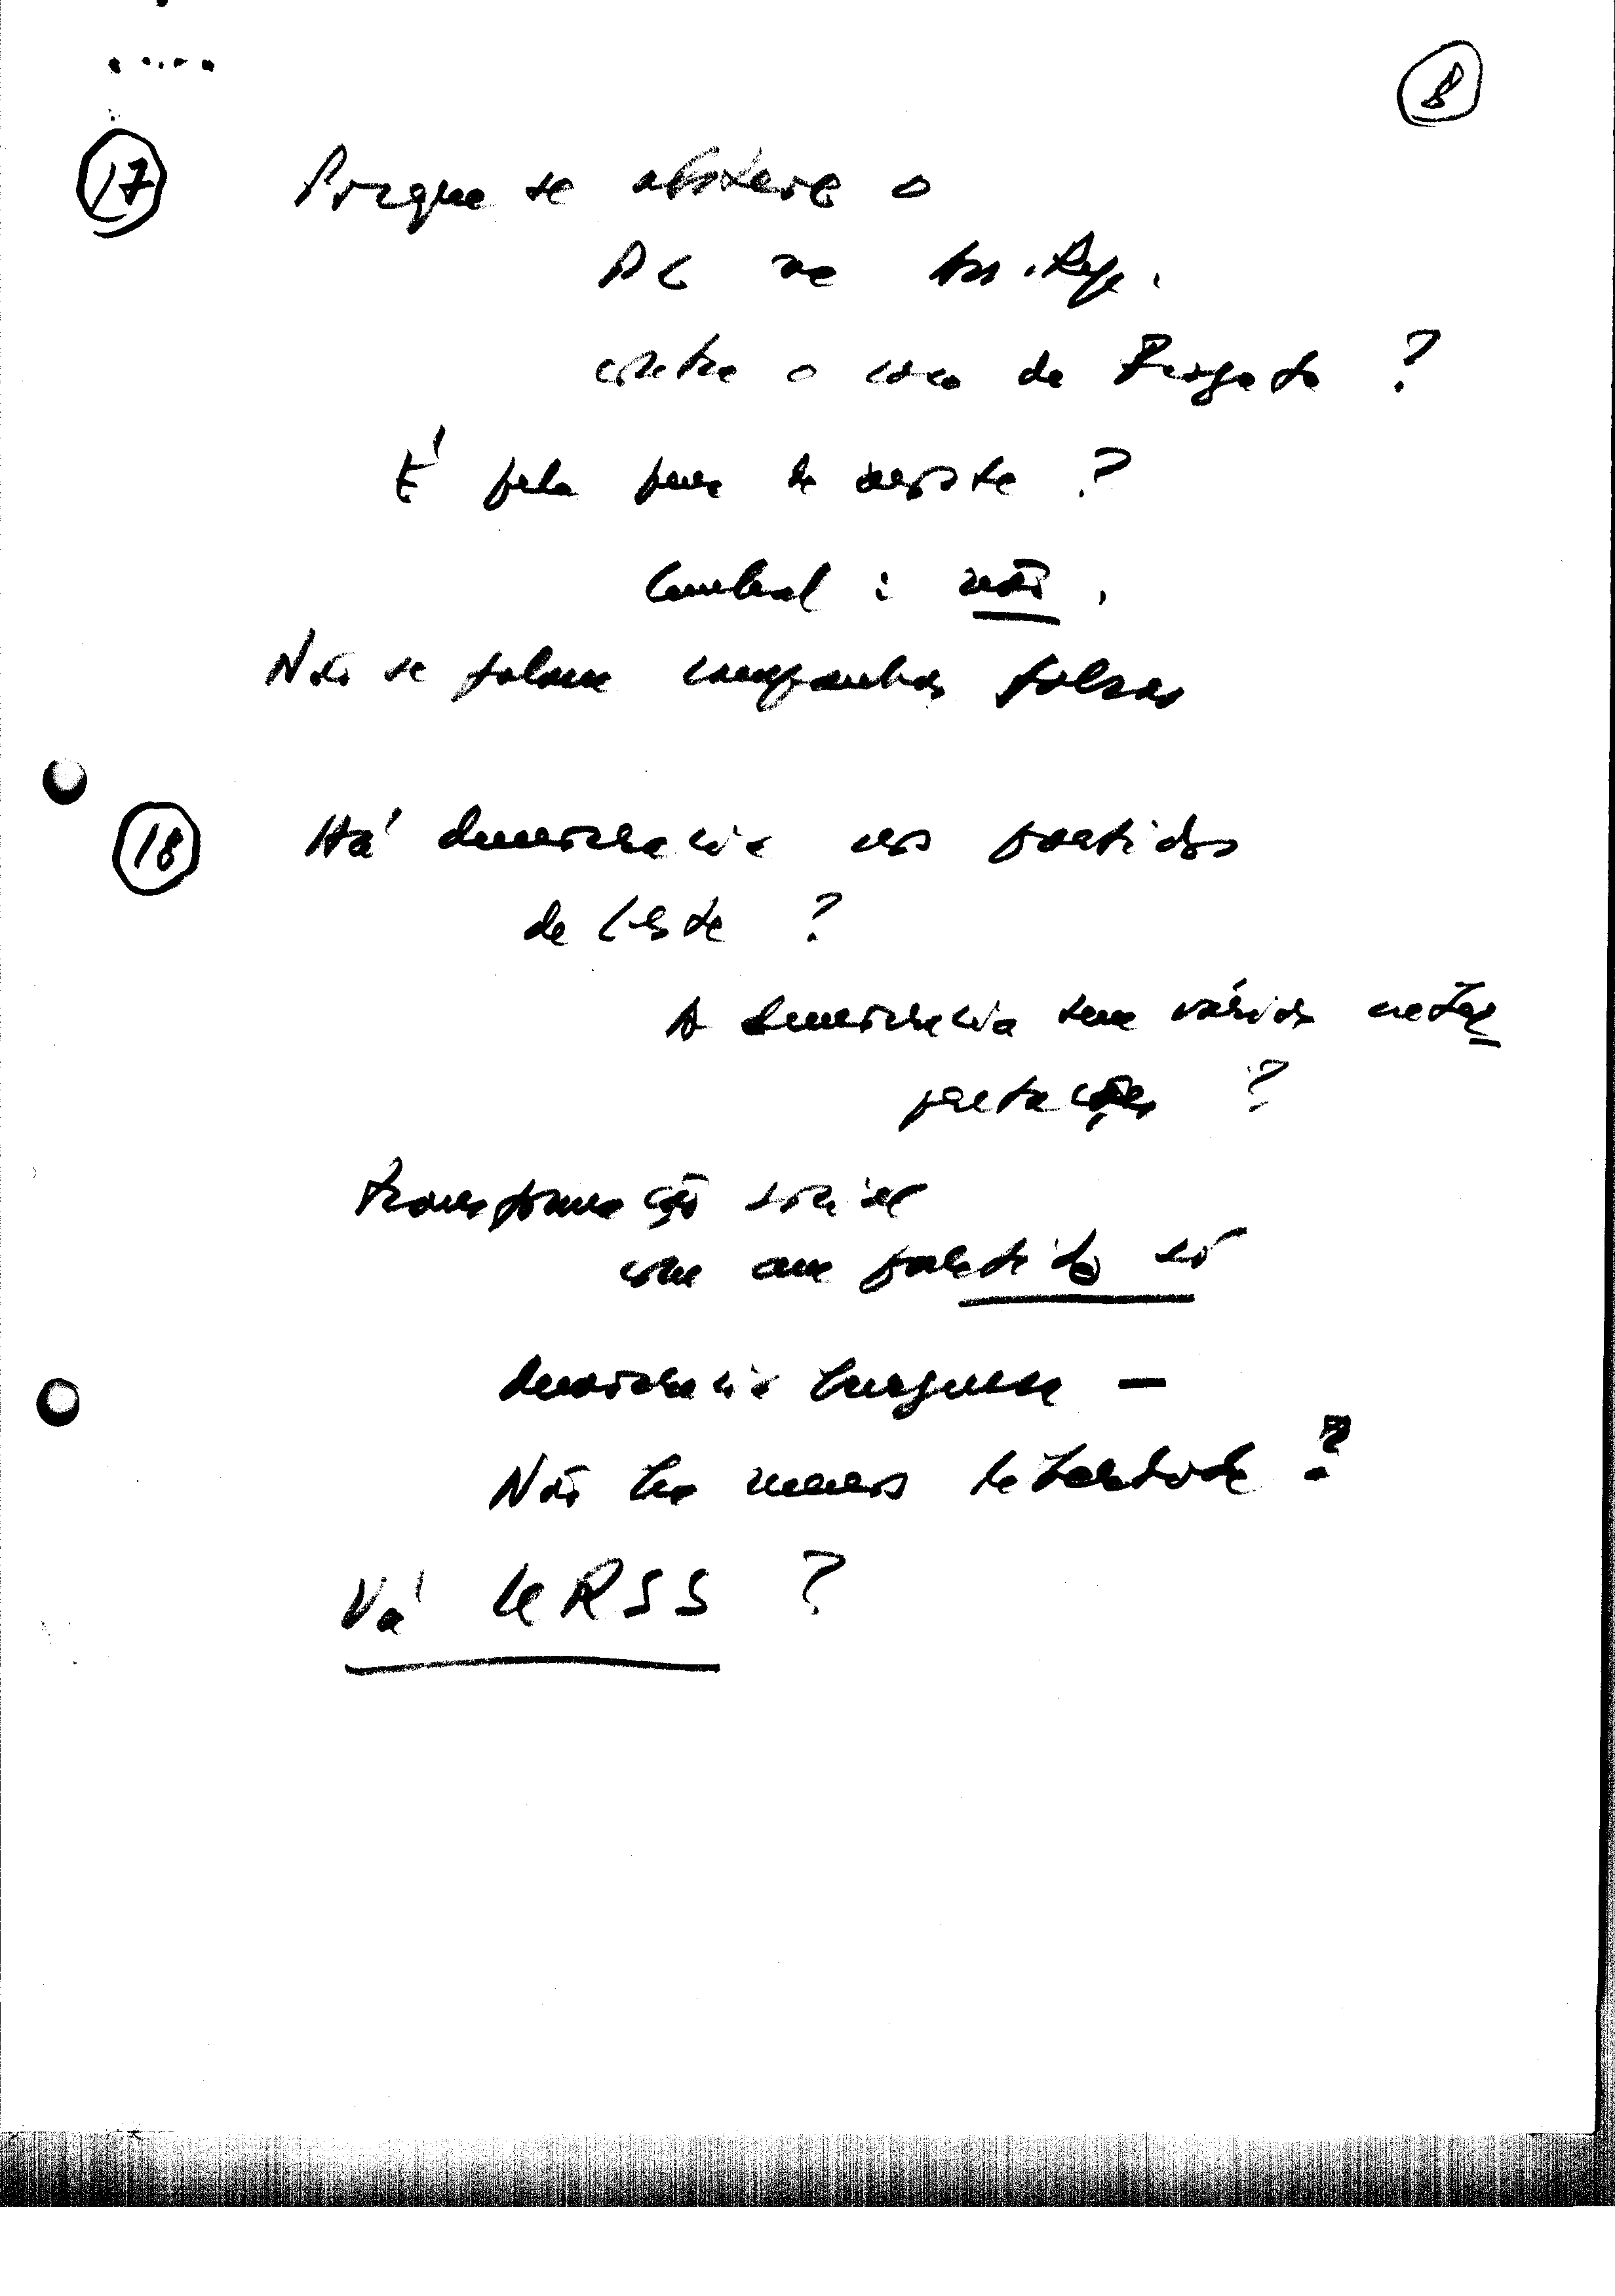 8
17 Porque se absteve o
PC na Ass. Rep.
contra o caso da Fragata ?
É pela pena de morte ?
Cunhal : não.
Não se façam campanhas falsas
18 Há democracia nos partidos
de Leste ?
A democracia tem várias inter
pretações ?
transformação social
com um partido só
democracia burguesa –
Não há menos liberdade ?
Vá URSS ?